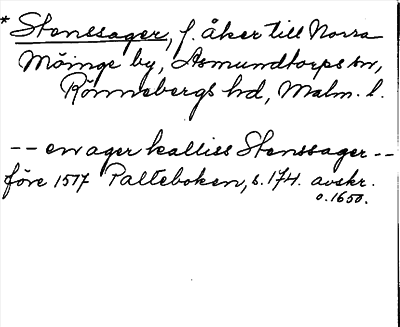 * Stenssager, f. åker till Norra
Möinge by, Asmundtorps sn,
Rönnebergs hd, Malm. l.
-- en ager kalliss Stenssager --
före 1517 Palteboken, s. 174. avskr.
o. 1650.